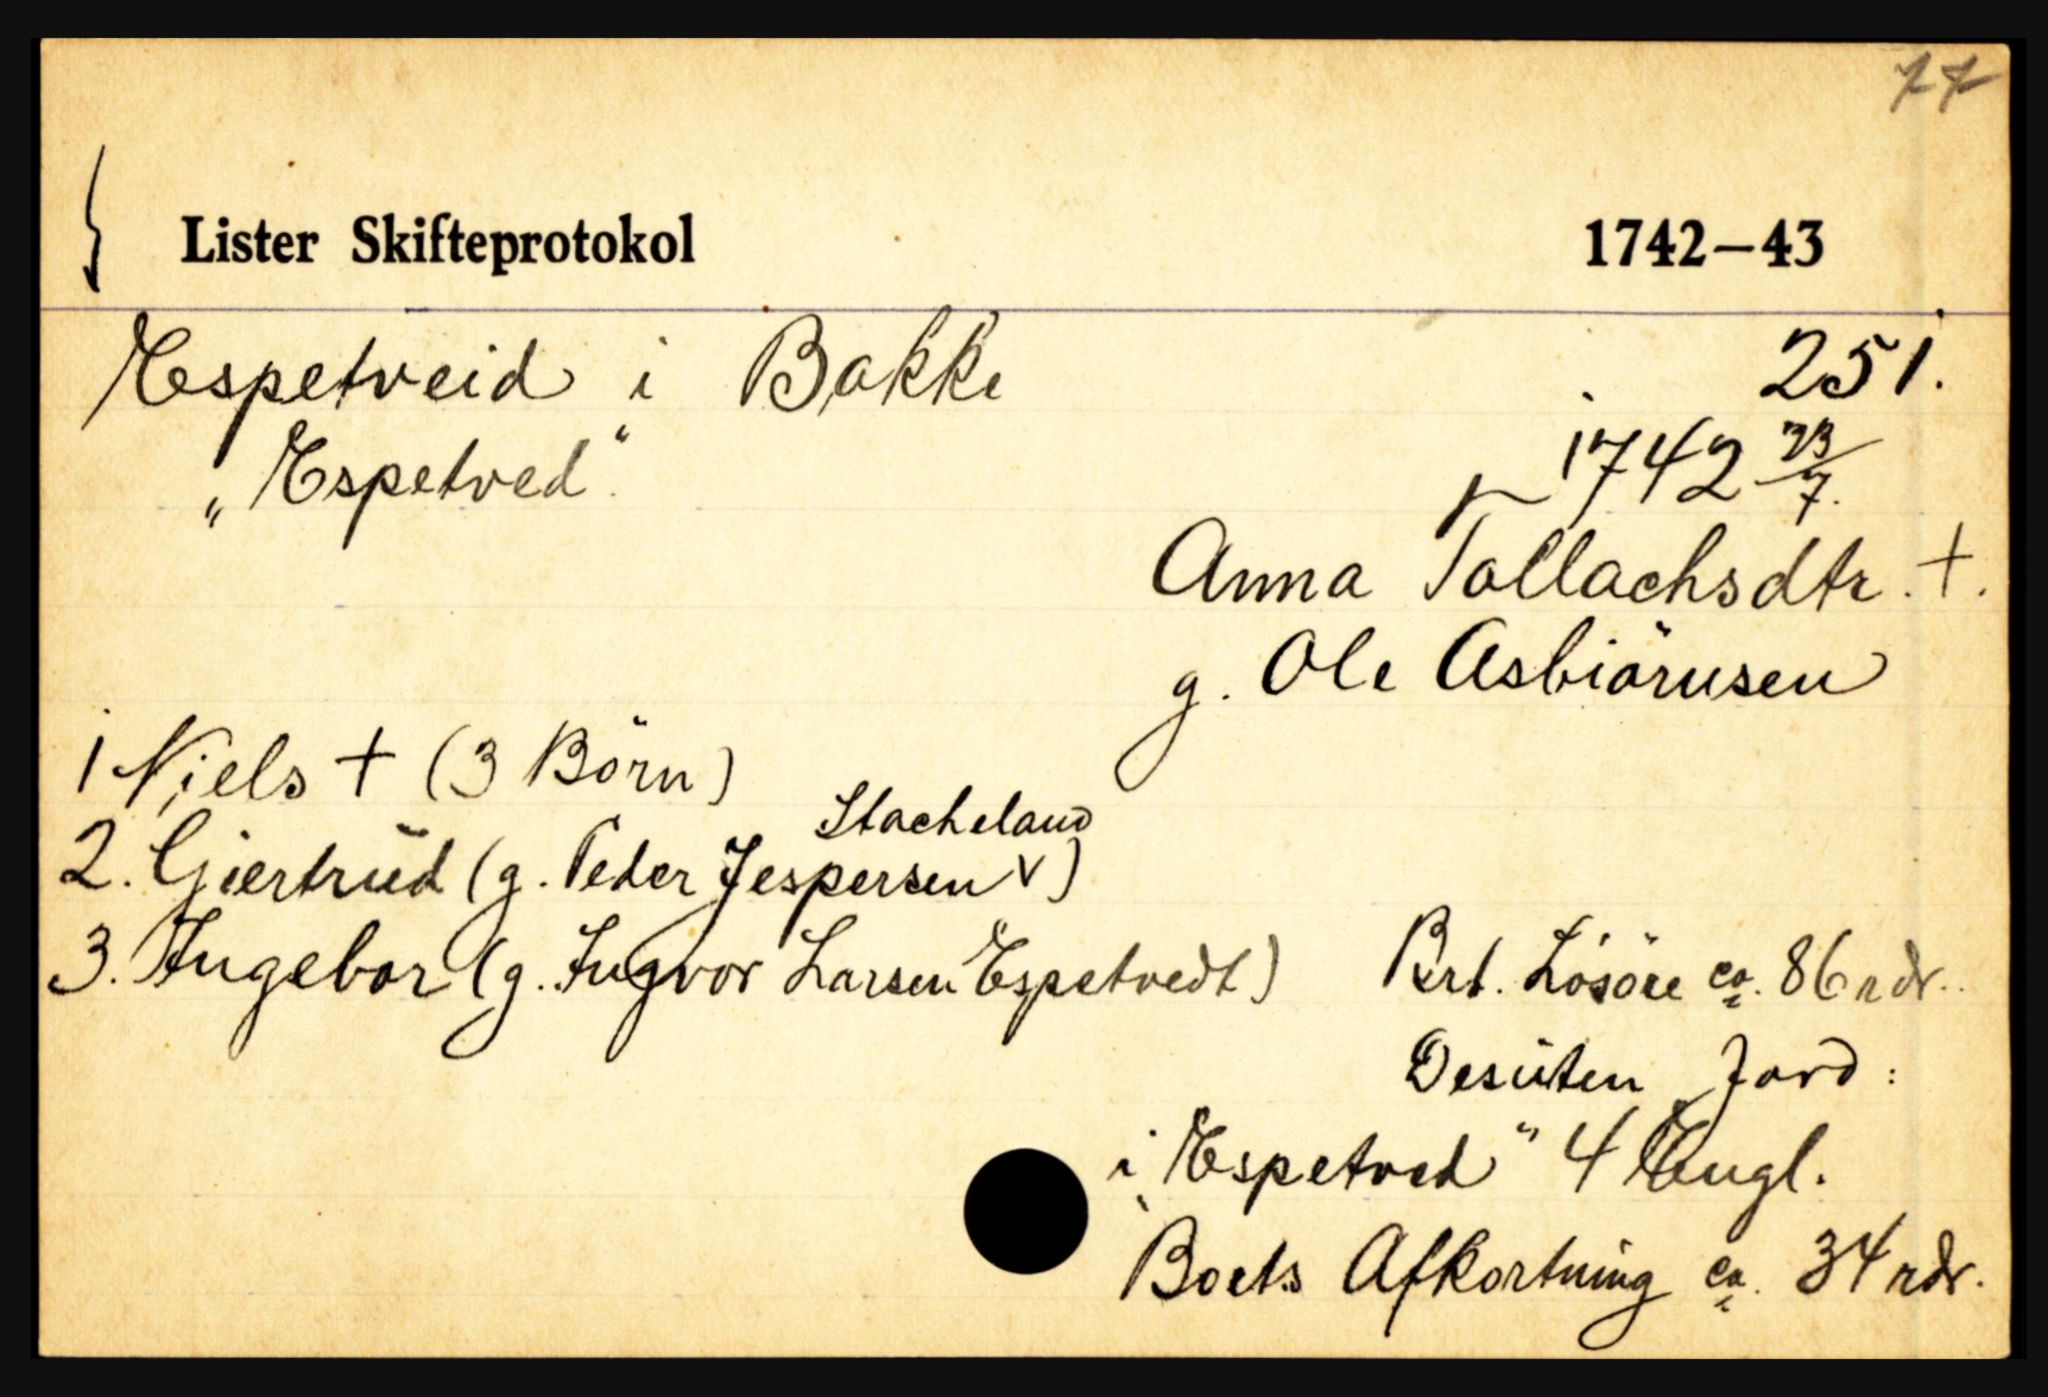 77
Lister Skifteprotokol 1742–43
Espetveid i Bakke 251.
„Espetved“ 1742 23/7.
Anna Tollachsdtr. †.
g. Ole Asbiörnsen
1 Niels † (3 Börn)
Stacheland
2. Giertrud (g. Peder Jespersen v)
3. Ingebor (g. Ingvor Larsen Espetvedt) Brt. Lösöre ca. 86 rdr.
Desuten Jord:
i „Espetved“ 4 Engl.
Boets Afkortning ca. 34 rdr.